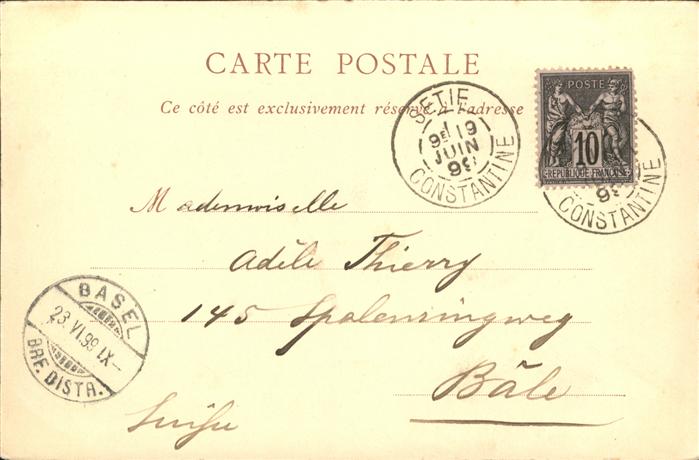 CARTE POSTALE
Ce côté est exclusivement réservé à l'adresse
SETIF
9E 19
JUIN
99
CONSTANTINE
POSTE
10
REPUBLIQUE FRANÇAISE
99
CONSTANTINE
Mademoiselle
Adèle Thierry
145 Spalenringweg
Bâle
Suisse
BASEL
23.VI.99.IX–
BRF. DISTR.